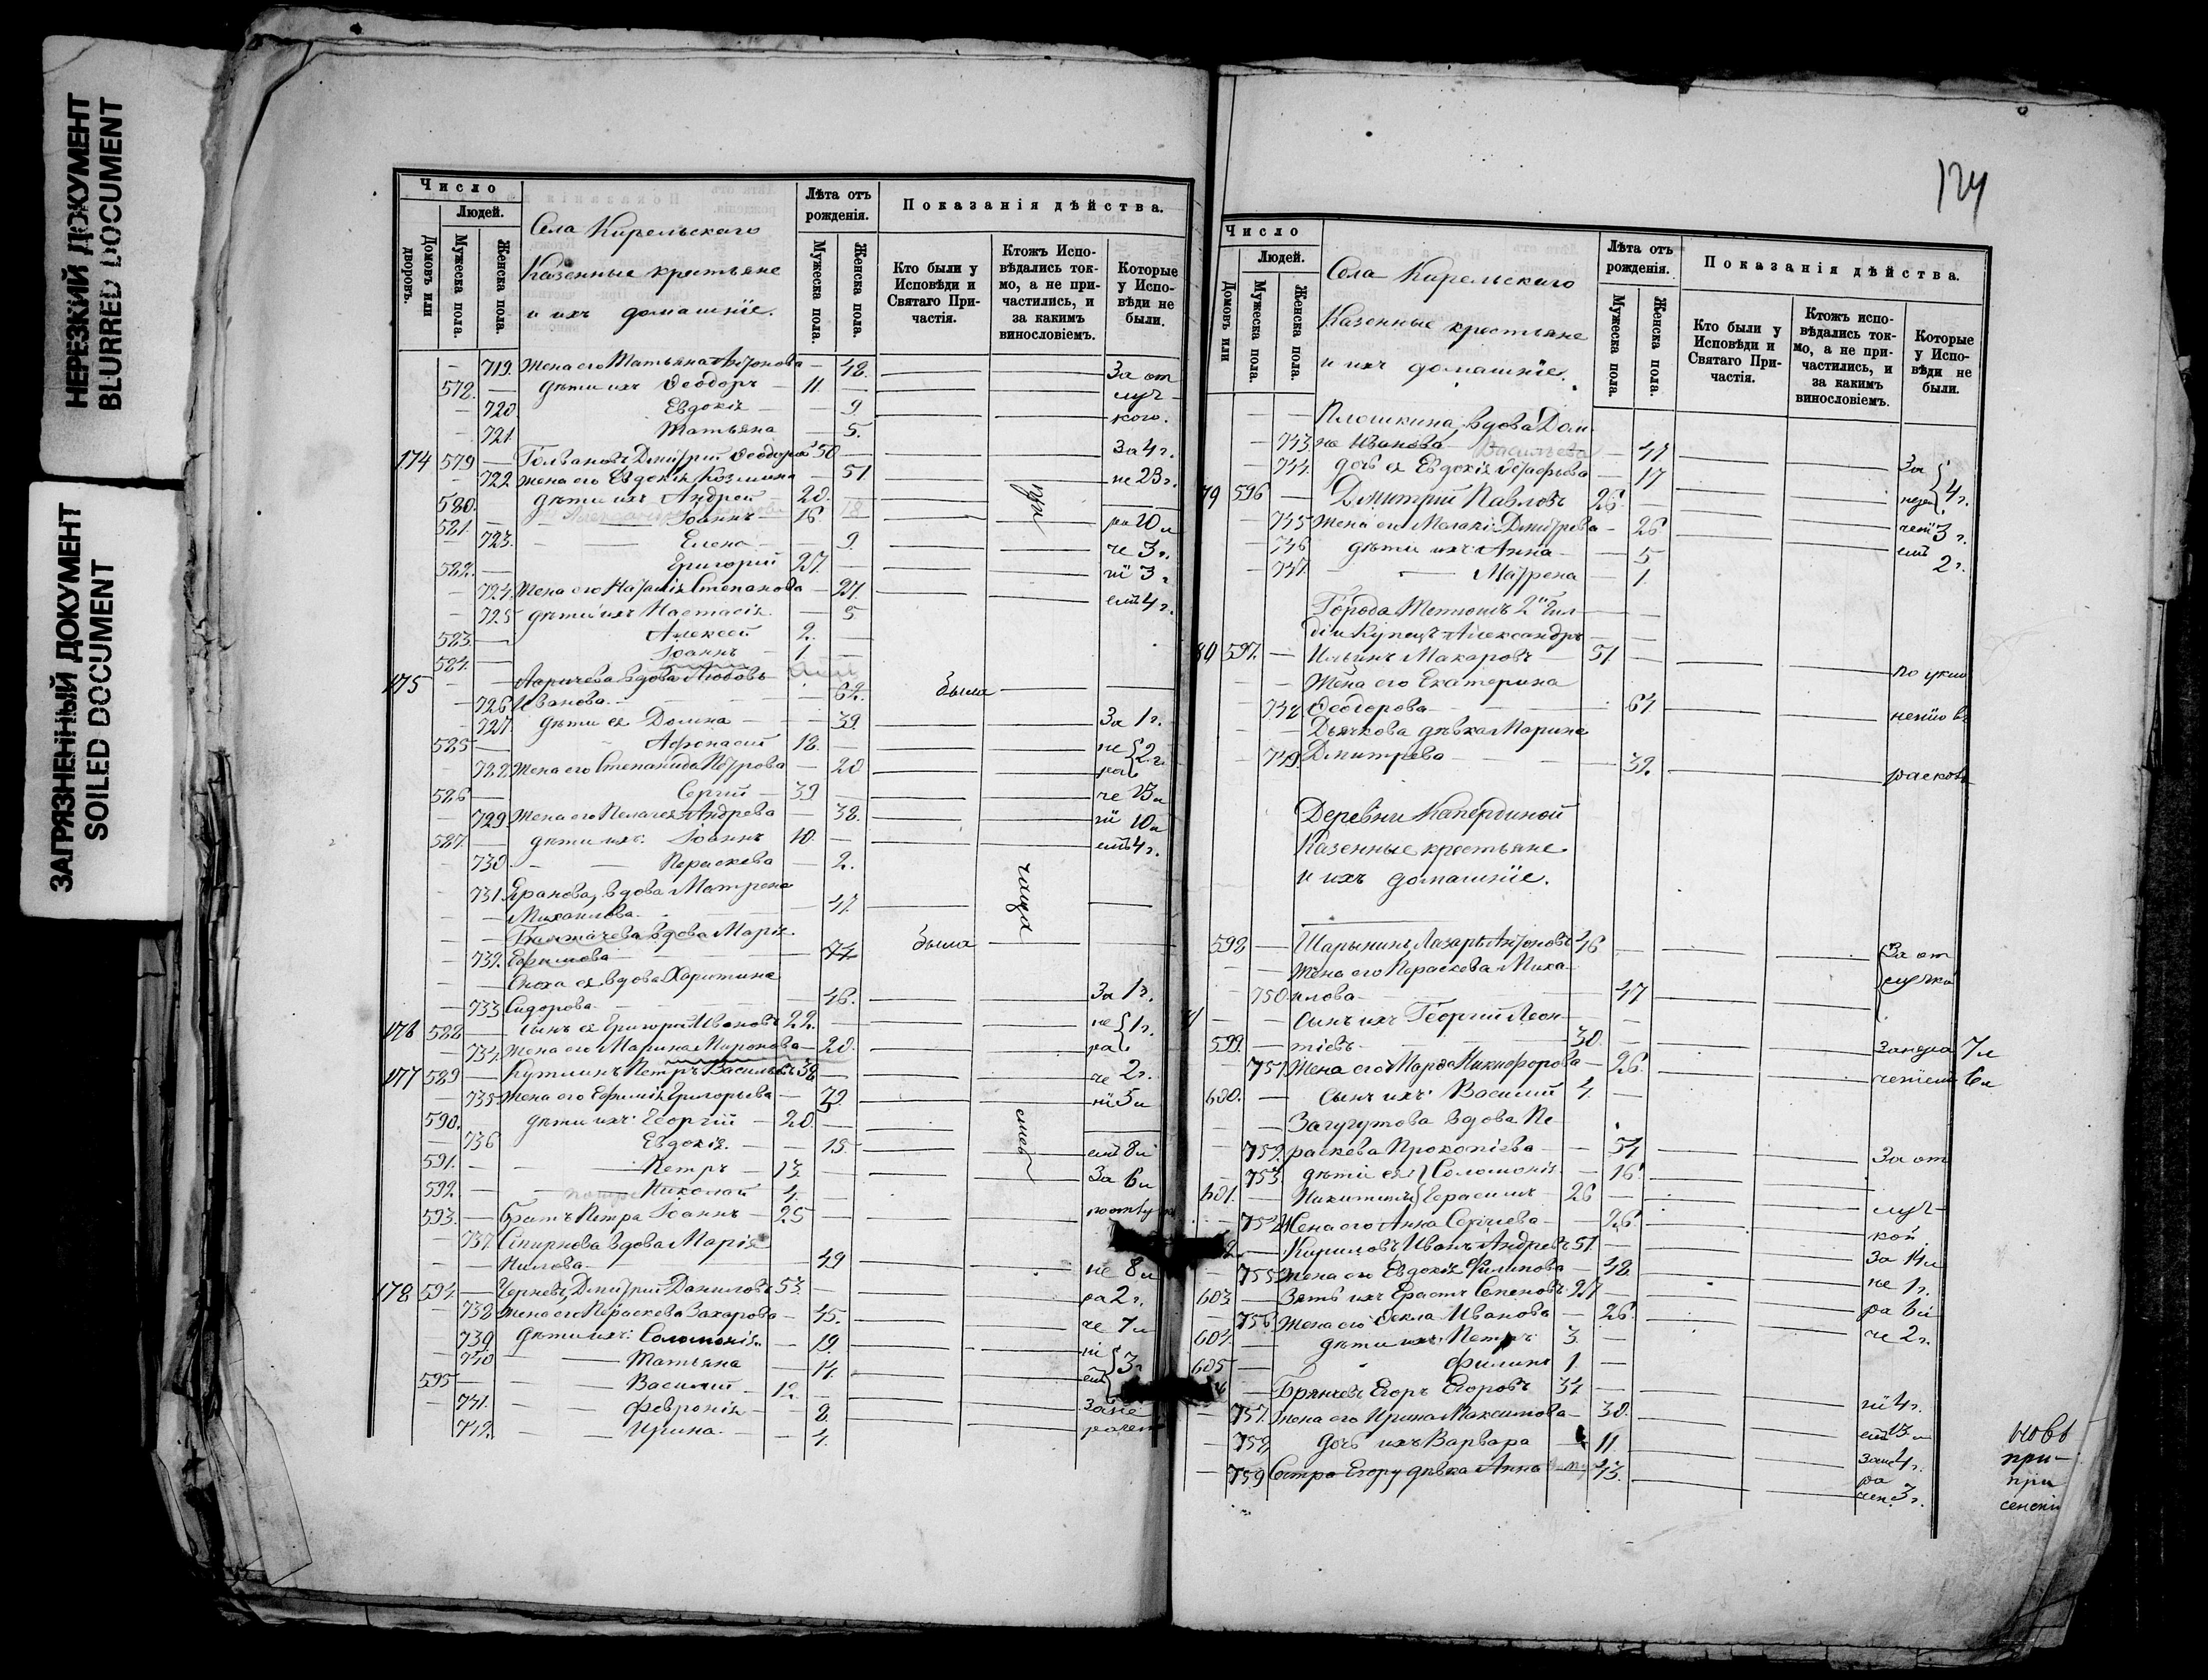 НЕРЕЗКИЙ ДОКУМЕНТ
BLURRED DOCUMENT
ЗАГРЯЗНЕННЫЙ ДОКУМЕНТ
SOILED DOCUMENT
Число
Людей.
Домовъ или дворовъ.
Мужеска пола.
Женска пола.
Села Кирельскаго
Казенные крестьяне
и ихъ домашніе.
Лѣта отъ рожденія.
Мужеска пола.
Женска пола.
Показанія дѣйства.
Кто были у Исповѣди и Святаго Причастія.
Ктожъ Исповѣдались токмо, а не причастились, и за какимъ винословіемъ.
Которые у Исповѣди не были.
719. Жена его Татьяна Антонова 48. За от
578. дѣти ихъ Ѳеодоръ 11 луч
720. Евдокія 9. кою.
721. Татьяна 5.
174 579 Дмитрій Ѳеодоровъ 50 За 4 г.
722. жена его Евдокія Козмина 51 не 23 г.
580. дѣти ихъ Андрей 20.
581. Іоаннъ 16 ра 10
723. Елена 9. че 3 г.
582. Григорій 27. ні 3 г.
724. Жена его Наталія Степанова 27. емъ 4 г.
725 дѣти ихъ Настасія 5
583. Алексей 2.
584. Іоаннъ 1
175 Ларичева вдова Любовь
726 Иванова 64. была
727. дѣти ея Домна 39. За 1 г.
585 Афонасій 18. не 2 г.
728. Жена его Степанида Петрова 20 ра
586 Сергій 39 че 13
729. Жена его Пелагея Андрева 38. ні 10
587. дѣти ихъ: Іоаннъ 10. емъ 4 г.
730. Параскева 2.
731. вдова Матрена
Михаилова 47.
вдова Марія
732. Ефимова 74 была
Сноха ея вдова Харитина
733. Сидорова 46. За 1 г.
176 588 Сынъ ея Григорій Ивановъ 22. не 1 г.
734. Жена его Марина Миронова 20. ра
177 589 Кутлинъ Петръ Васильевъ 38 че 2 г.
735 Жена его Ефимія Григорьева 39 ні 5
590. дѣти ихъ: Георгій 20.
736 Евдокія. 15. емъ 8
591. Петръ 13. За 6
592. Николай 4.
593. Братъ Петра Іоаннъ 25
737. Смирнова вдова Марія
Нилова 49 не 8
178 594 Черневъ Дмитрій Даниловъ 53. ра 2 г.
738. Жена его Параскева Захарова 45. че 7
739. дѣти ихъ: Соломонія 19. ні
740 Татьяна 14. емъ 3 г.
595 Василій 12.
741. Февронія 8. За не
742. Ирина 4. раден
124
Число
Людей.
Домовъ или
Мужеска пола.
Женска пола.
Села Кирельскаго
Казенные крестьяне
и ихъ домашніе.
Лѣта отъ рожденія.
Мужеска пола.
Женска пола.
Показанія дѣйства.
Кто были у Исповѣди и Святаго Причастія.
Ктожъ исповѣдались токмо, а не причастились, и за какимъ винословіемъ.
Которые у Исповѣди не были.
Плошкина, вдова Дом
743. на Иванова Васильева 47 За
744. дочь ея Евдокія 17 4 г.
79 596 Дмитрій Павловъ 26
745 Жена его Дмитрева 26 3 г.
746 дѣти ихъ: Анна 5 2 г.
747. Матрена 1
Города Тетюшъ 2й гил
діи Купецъ Александръ
80 597. Ильинъ Макаровъ 51.
Жена его Екатерина по укло
748 Ѳеодорова 64 ненію въ
Дьячкова дѣвка Марина
749. Дмитрева 39. расколъ
Деревни Каперлиной
Казенные крестьяне
и ихъ домашніе.
598 Шарынинъ Лазарь Антоновъ 46 За от
Жена его Параскева Миха лучкой
750. илова 47
Сынъ ихъ Георгій Леон
599. тіевъ 30. 7
751. Жена его Марѳа Никифорова 26. 6
600. Сынъ ихъ: Василій 4
Загугутова вдова Па
752. раскева Прокопіева 54 За от
753. дѣти ея Соломонія 16.
601. Никитины Герасимъ 26 луч
754. Жена его Анна Сергіева 26. кой
Кириловъ Иванъ Андревъ 51. За 14
755 Жена его Евдокія Филипова 48 не 1 г.
603. Зять ихъ Ерастъ Семеновъ 27 ра 6
756. Жена его Ѳекла Иванова 26. че 2 г.
604. дѣти ихъ: Петръ 3.
605 Филипъ 1.
Брянчевъ Егоръ Егоровъ 34. ні 4 г.
757. жена его Ирина Максимова 30. емъ 13
758. дочь ихъ Варвара 11. 4 г.
759 Сестра Егору дѣвка Анна 43. 3 г.